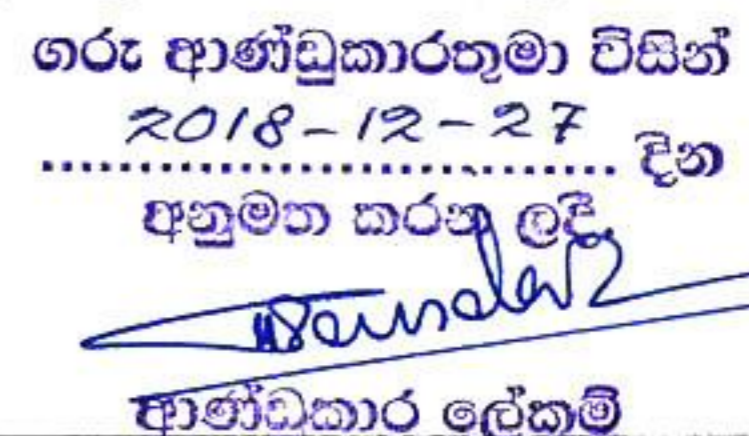 ගරු ආණ්ඩුකාරතුමා විසින්
2018-12-27 දින
අනුමත කරන ලදී.
ආණ්ඩුකාර ලේකම්